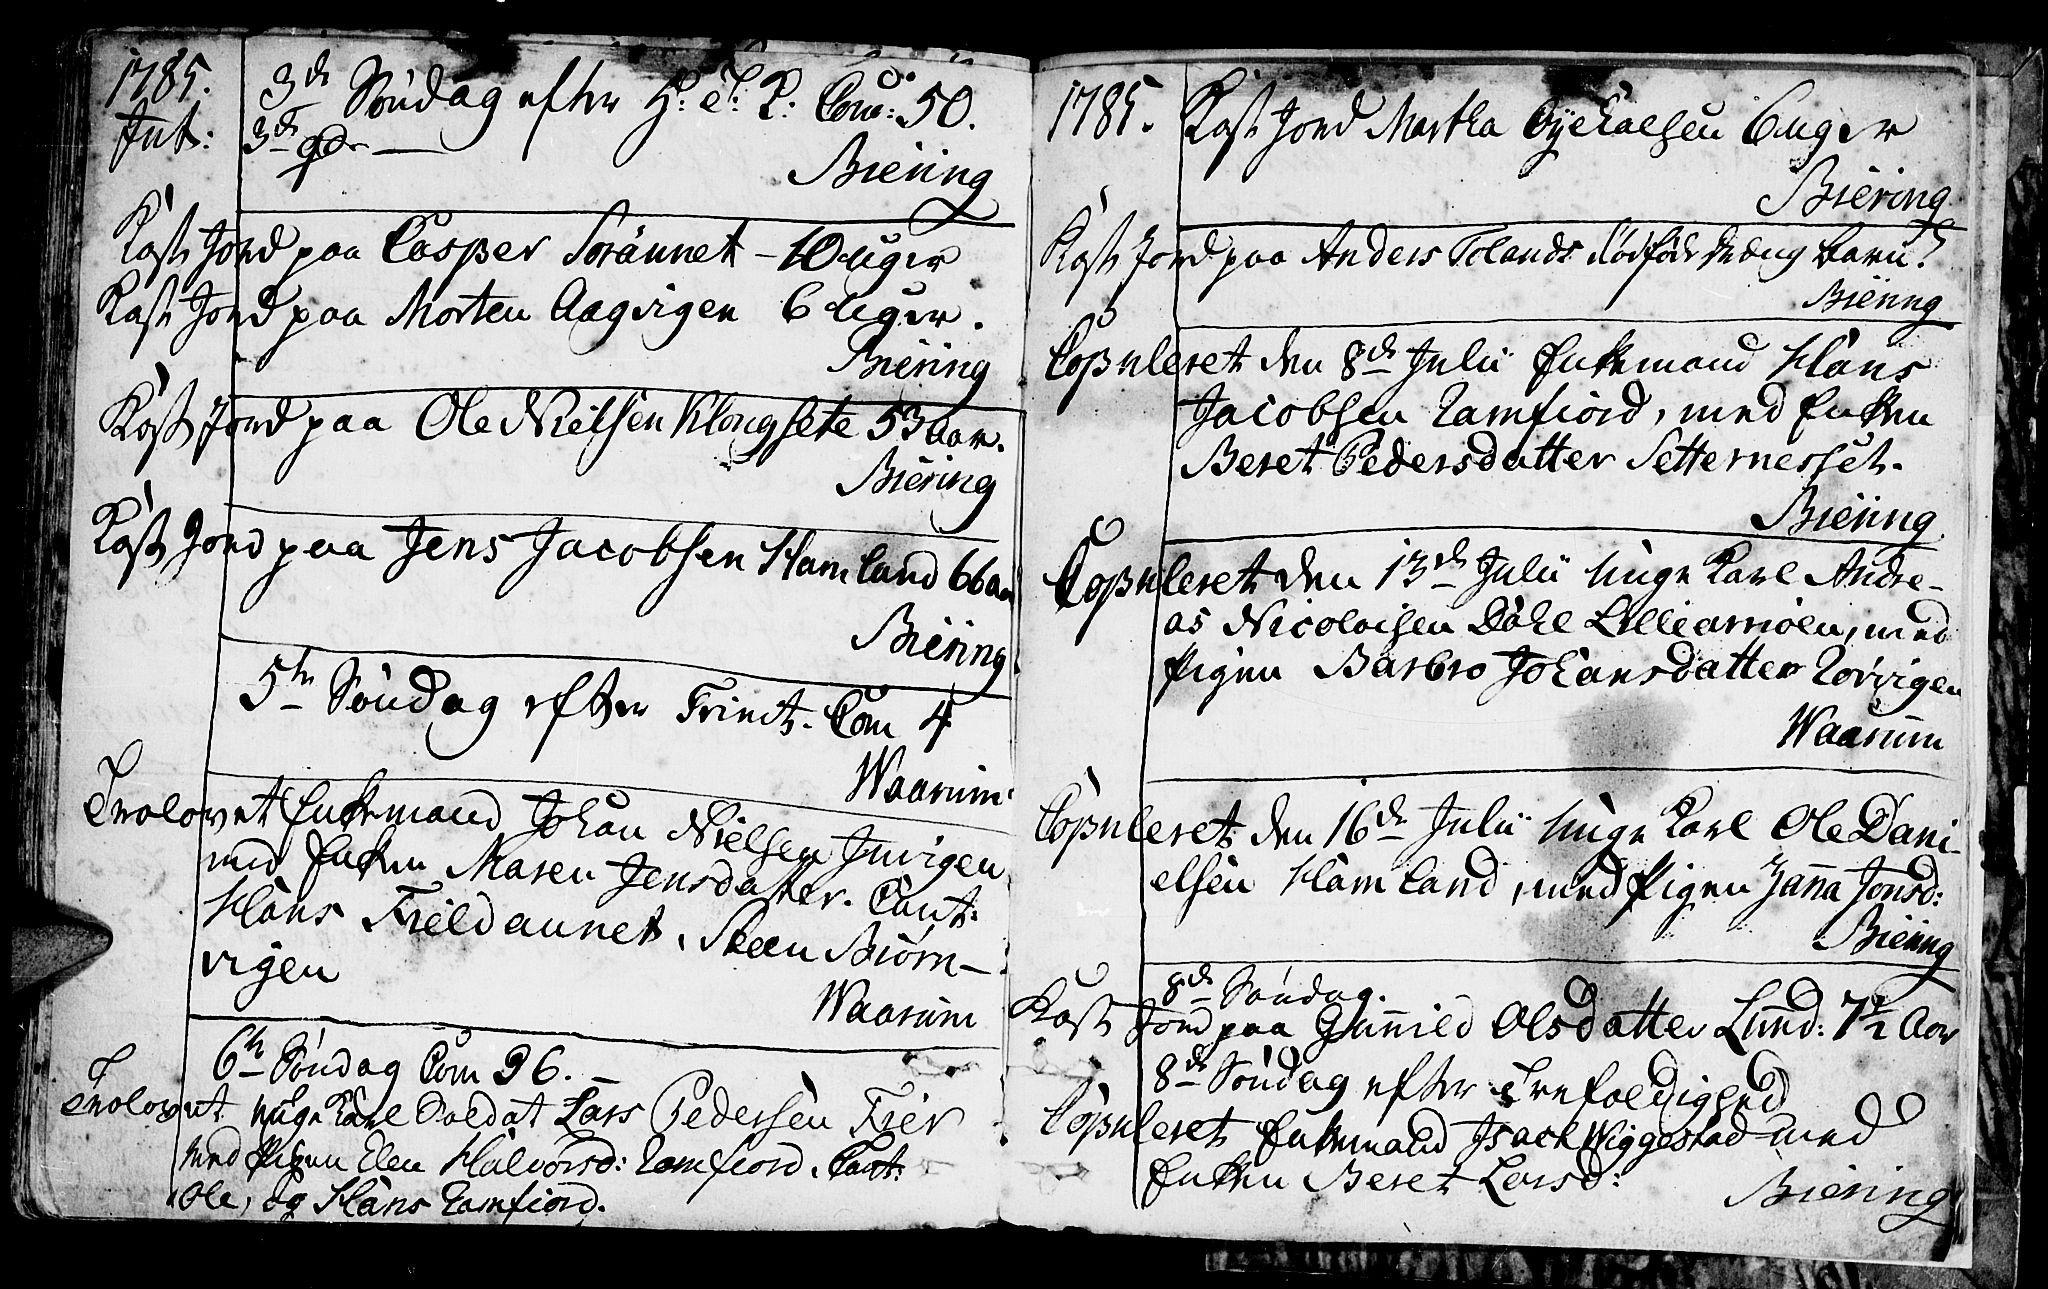 1785.
3de Søndag efter H: T: D: Com: 50.
Int: 3de gr.
Biering
Kast Jord paa Casper Sorännet - 10 uger
Kast Jord paa Morten Aagvigen 6 uger.
Biering
Kast Jord paa Ole Nielsen Klongsete 53 Aar.
Biering
Kast Jord paa Jens Jacobsen Hamland 66 aar
Biering
5te Søndag efter Trinit. Com 4
Waarum.
Trolovet Enkemand Johan Nielsen Juvigen
med Enken Maren Jensdatter. Caut:
Hans Fieldaunet, Steen Biørn-
vigen
Waarum
6te Søndag Com 36.
Trolovet unge Karl Soldat Lars Pedersen Frer
med Pigen Elen Halvorsd: Ramfiord. Caut:
Ole, og Hans Ramfiord.
1785. Kast Jord Martha Øyekaelsen 6 uger
Biering
Kast Jord paa Anders Tolands dødføde dræng barn.
Biering
Copuleret den 8de Julii Enkemand Hans
Jacobsen Ramfiord, med Enken
Beret Pedersdatter Setternesset.
Biering
Copuleret den 13de Julii unge Karl Andre-
as Nicolaisen Døhl Lilleamoen, med
Pigen Barbro Johansdatter Rørvigen
Waarum
Copuleret den 16de Julii unge Karl Ole Dani-
elsen Hamland, med Pigen Janna Jonsd:
Biering
8de Søndag.
Kast Jord paa Gunnild Olsdatter Lund: 7½ Aar
8de Søndag efter Trefoldighed
Copuleret Enkemand Isack Wiggestad med
Enken Beret Larsd:
Biering